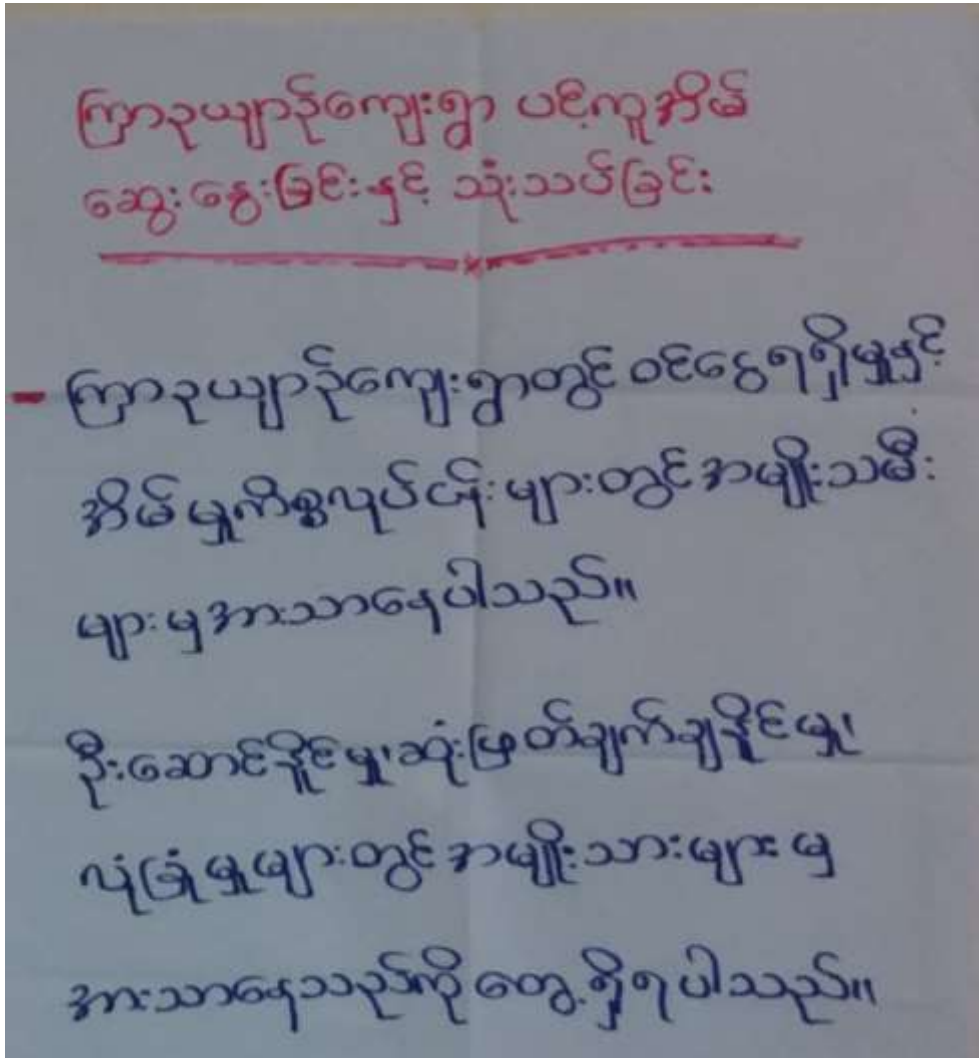 ကြာဥယျာဉ်ကျေးရွာ ပင့်ကူအိမ်
ဆွေးနွေးခြင်းနှင့် သုံးသပ်ခြင်း
- ကြာဥယျာဉ်ကျေးရွာတွင် ဝင်ငွေရရှိမှုနှင့်
အိမ်မှုကိစ္စလုပ်ငန်းများတွင် အမျိုးသမီး
များမှ အားသာနေပါသည်။
ဦးဆောင်နိုင်မှု၊ ဆုံးဖြတ်ချက်ချနိုင်မှု၊
လုံခြုံမှုများတွင် အမျိုးသားများမှ
အားသာနေသည်ကို တွေ့ရှိရပါသည်။